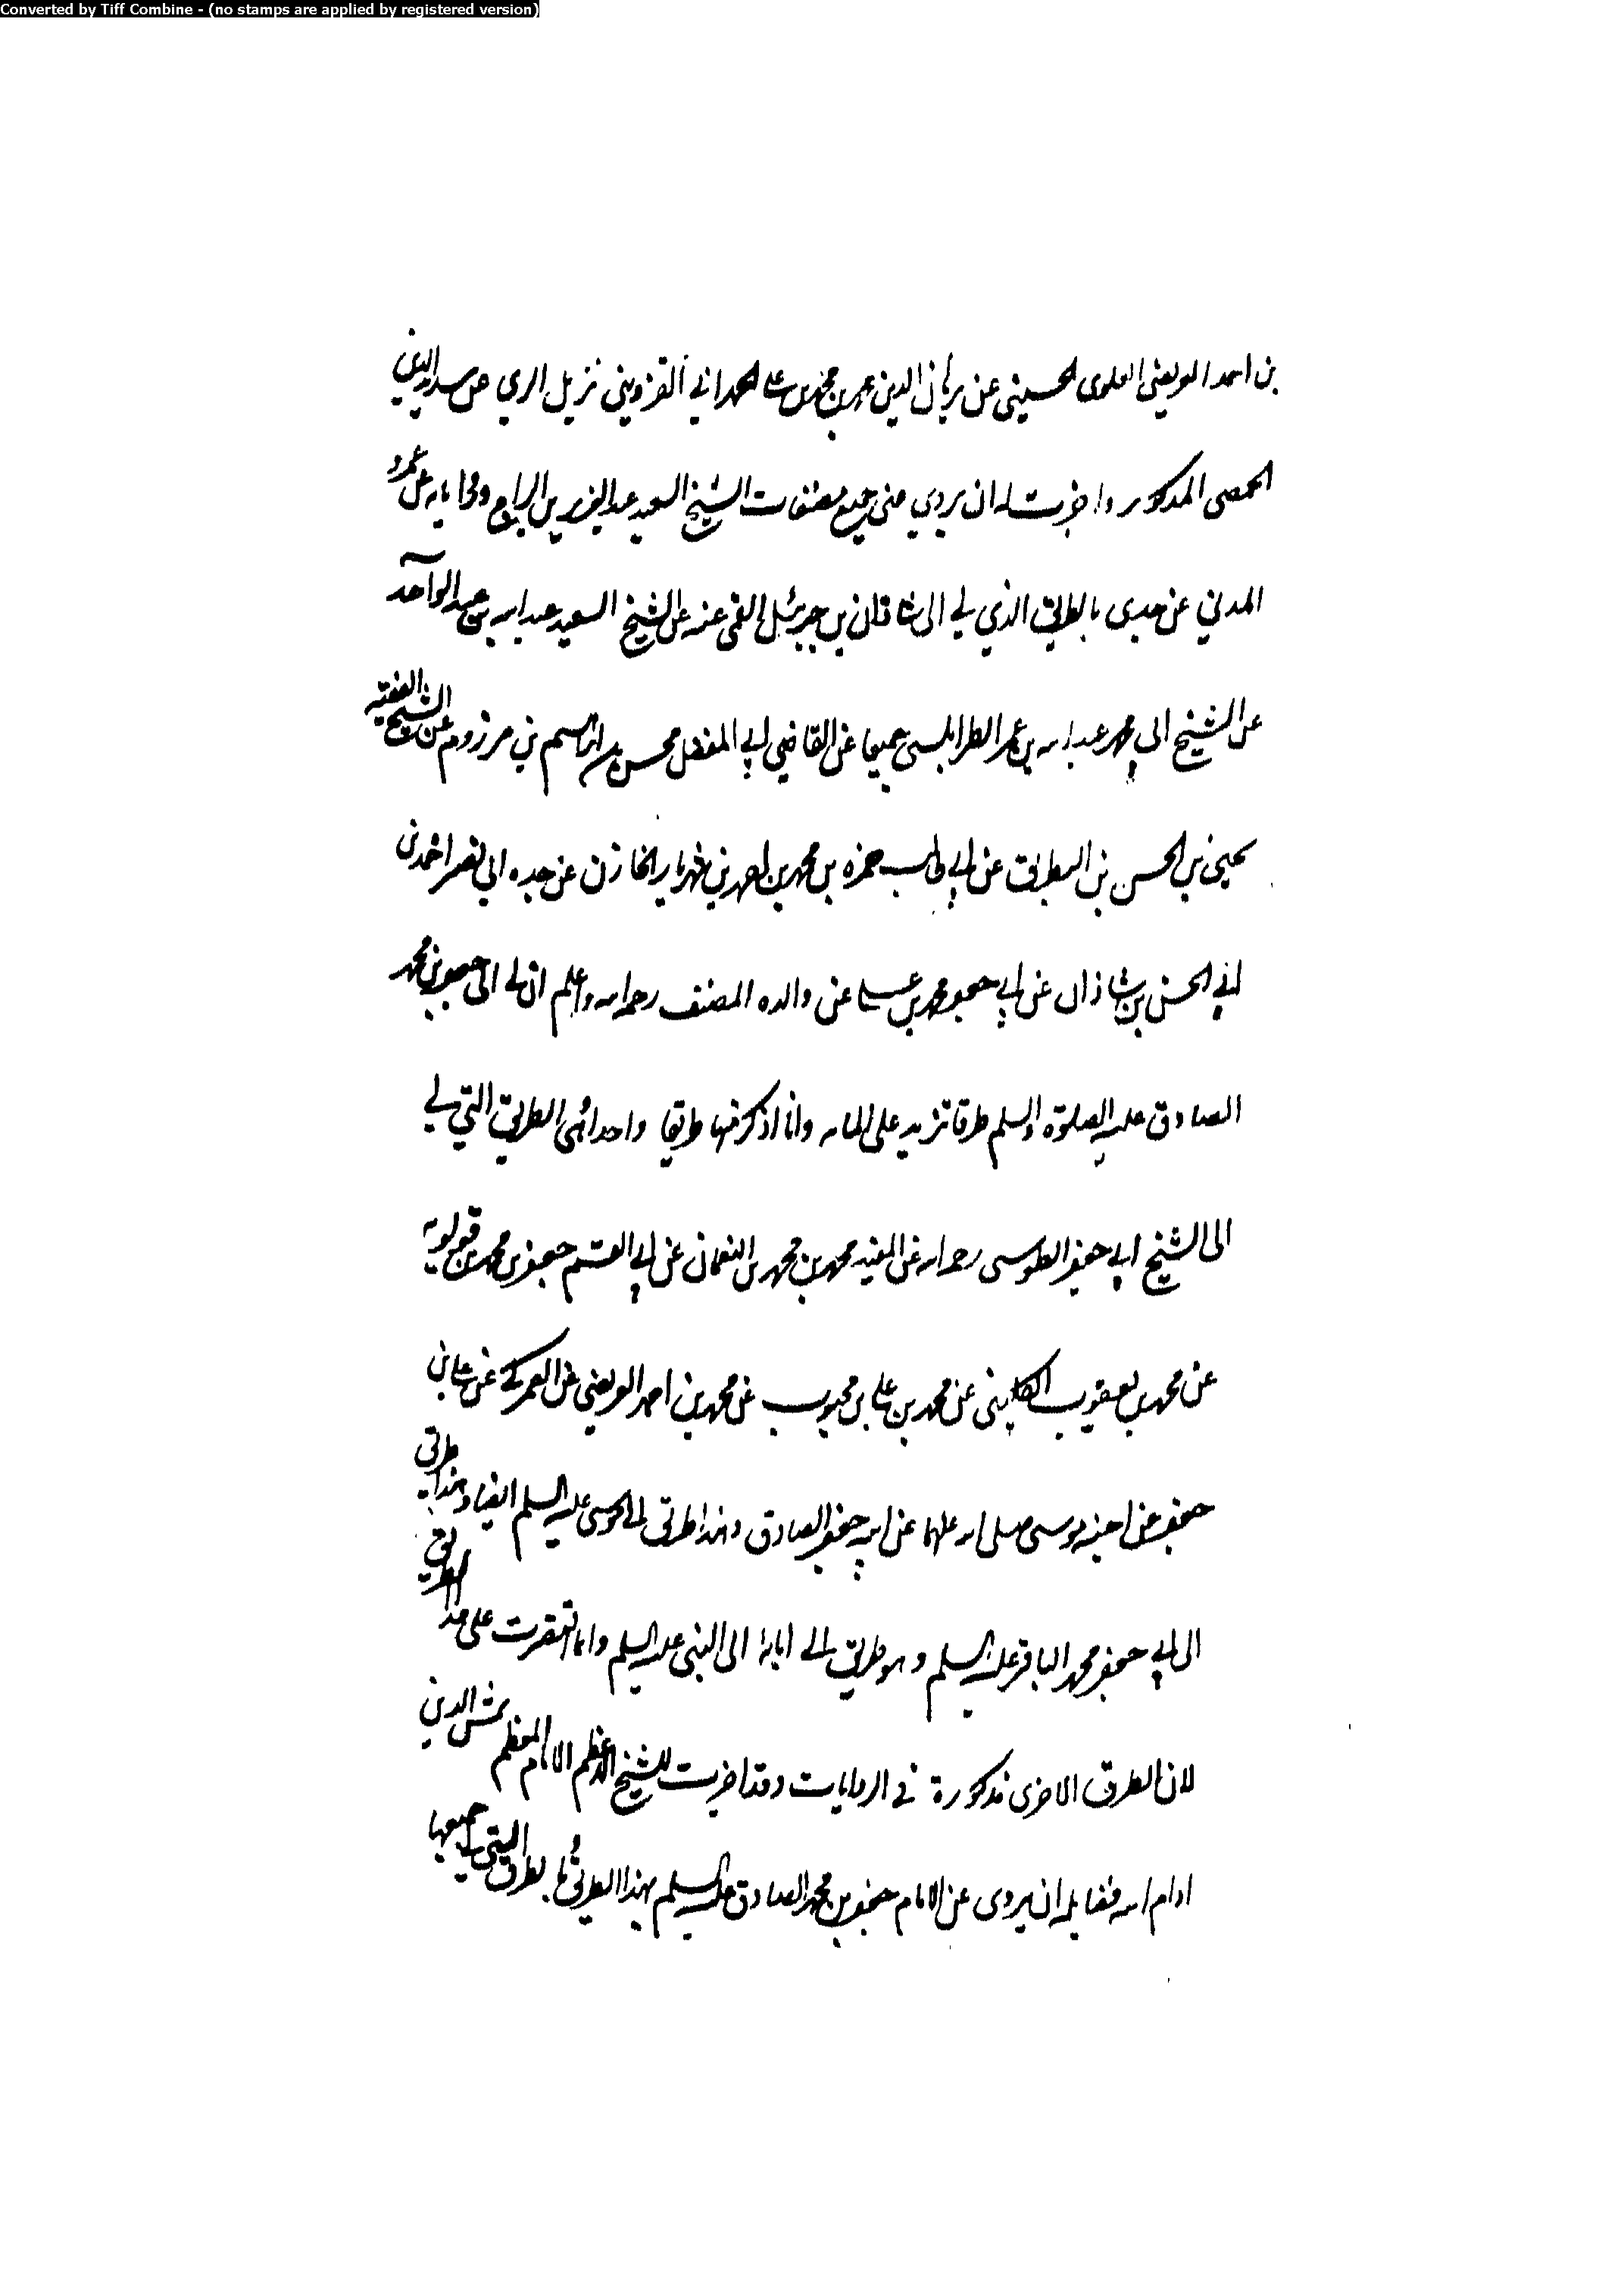 Converted by Tiff Combine - (no stamps are applied by registered version)
بن احمد العريضي العلوى الحسيني عن برهان الدين محمد بن محمد بن على الحمداني القزويني نزيل الري عن سديد الدين
الحمصى المذكور واجزت له ان يروي عنى جميع مصنفات الشيخ السعيد عبد العزيز بن البراج ورواياته عن
المدني عن جدى بالطريق الذي لي الى شاذان بن جبرئيل القمى عنه عن الشيخ السعيد عبد الله بن عبد الواحد
عن الشيخ ابى محمد عبد الله بن عمر الطرابلسى جميعا عن القاضي ابي المفضل محسن بن القاسم بن مرزوم عن الشيخ الفقيه
يحيى بن الحسن بن البطريق عن ابي طالب حمزه بن محمد بن احمد بن شهريار الخازن عن جده ابي نصر احمد بن
ابي الحسن بن شاذان عن ابي جعفر محمد بن على عن والده المصنف رحمه الله واعلم ان لي الى جعفر بن محمد
الصادق عليه الصلوة والسلم طرقا تزيد على المايه وانا اذكر منها طريقا واحدا وهى الطريق التي لي
الى الشيخ ابي جعفر الطوسى رحمه الله عن المفيد محمد بن محمد بن النعمان عن ابي القسم جعفر بن محمد بن قولويه
عن محمد بن يعقوب الكلينى عن محمد بن على بن محبوب عن محمد بن احمد العريضي عن العمركى عن على بن
جعفر عن اخيه موسى صلى الله عليهما عن ابيه جعفر الصادق وهذا طريقى الى موسى عليه السلم ايضا وهذا طريقى
الى ابي جعفر محمد الباقر عليه السلم وهو طريقى الى ابائه الى النبى عليه السلم وانما اقتصرت على هذا الطريق
لان الطرق الاخرى مذكورة في الروايات وقد اجزت للشيخ الاعظم الامام المعظم شمس الدين
ادام الله فضايله ان يروى عن الامام جعفر بن محمد الصادق عليه السلم بهذا الطريق بل بالطرق التى لي جميعها